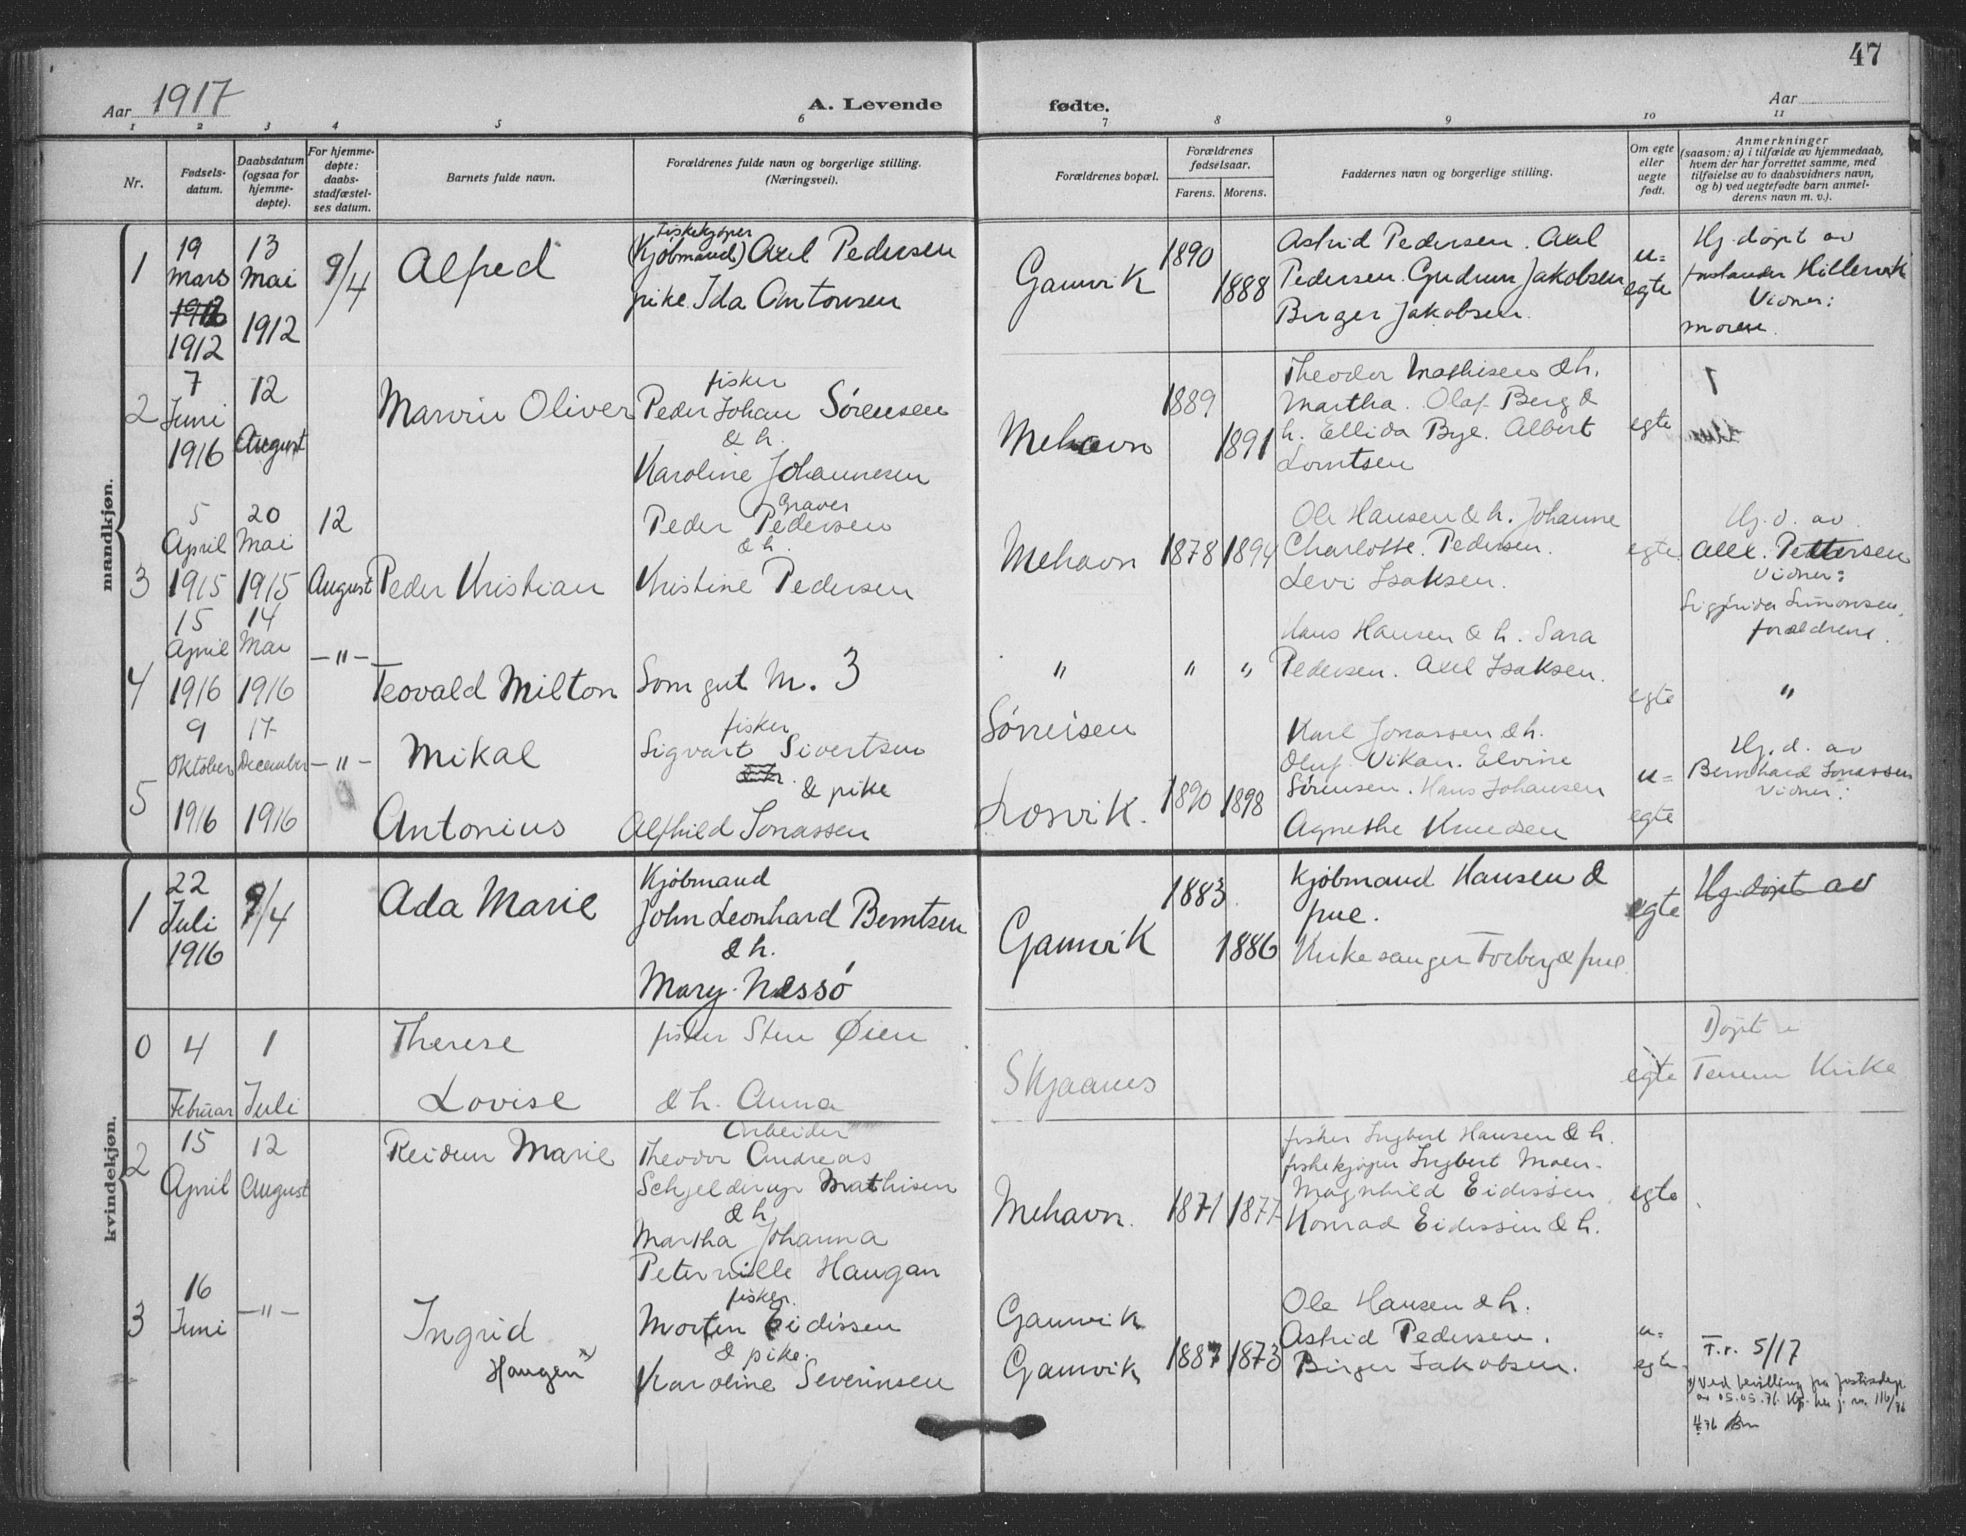 47
Aar 1917
A. Levende fødte.
Aar
1 2 3 4 5 6 7 8 9 10 11
Nr.
Fødsels-
datum.
Daabsdatum
(ogsaa for
hjemme-
døpte).
For hjemme-
døpte:
daabs-
stadfæstel-
ses datum.
Barnets fulde navn.
Forældrenes fulde navn og borgerlige stilling.
(Næringsvei).
Forældrenes bopæl.
Forældrenes
fødselsaar.
Farens. Morens.
Faddernes navn og borgerlige stilling.
Om egte
eller
uegte
født.
Anmerkninger
(saasom: a) i tilfælde av hjemmedaab,
hvem der har forrettet samme, med
tilføielse av to daabsvidners navn,
og b) ved uegtefødte barn anmel-
derens navn m. v.).
mandkjøn.
1
19
Mars
1912
13
Mai
1912
9/4
Alfred
Fiskekjøper
(Kjøbmand) Axel Pedersen
pike Ida Antonsen
Gamvik
1890
1888
Astrid Pedersen. Axel
Pedersen. Gudrun Jakobsen
Birger Jakobsen.
u=
egte
Hj. døpt av
forstander Hillervik
Vidner:
moren.
2
7
Juni
1916
12
August
Marvin Oliver
fisker
Peder Johan Sørensen
& h.
Karoline Johannesen
Mehavn
1889
1891
Theodor Mathisen & h.
Martha. Olaf Berg &
h. Ellida Bye. Albert
Lorntsen
egte
3
5
April
1915
20
Mai
1915
12
August
Peder Kristian
Graver
Peder Pedersen
& h.
Kristine Pedersen
Mehavn
1878
1894
Ole Hansen & h. Johanne
Charlotte. Pedersen.
Levi Isaksen.
egte
Hj. d. av
Alex. Pettersen
Vidner:
Sigfrida Simonsen,
forældrene.
4
15
April
1916
14
Mai
1916
— " —
Teovald Milton
Som gut M. 3
" " "
Hans Hansen & h. Sara
Pedersen. Axel Isaksen.
egte
"
5
9
Oktober
1916
17
December
1916
— " —
Mikal
Antonius
fisker
Sigvart Sivertsen
& pike
Alfhild Jonassen
Sørreisen
Losvik.
1890
1898
Karl Jonassen & h.
Oluf Vikan. Elvine
Sørensen. Hans Johansen
Agnethe Knudsen
u=
egte
Hj. d. av
Bernhard Jonassen
Vidner:
kvindekjøn.
1
22
Juli
1916
9/4
Ada Marie
Kjøbmand
John Leonhard Berntsen
& h.
Mary Nessø
Gamvik
1883
1886
Kjøbmand Hansen &
frue.
Kirkesanger Torberg & frue
egte
Hj. døpt av
0
4
Februar
1
Juli
Therese
Lovise
fisker Sten Øien
& h. Anna
Skjaanes
egte
Døpt i
Tennen Kirke
2
15
April
12
August
Reidun Marie
Arbeider
Theodor Andreas
Schjelderup Mathisen
& h.
Martha Johanna
Peternille Haugan
Mehavn.
1871
1877
fisker Ingbert Hansen & h.
fiskekjøper Ingbert Moen.
Magnhild Eidissen
Konrad Eidissen & h.
egte
3
16
Juni
— " —
Ingrid
Haugen x)
fisker.
Morten Eidissen
& pike.
Karoline Severinsen
Gamvik
Gamvik
1887
1873
Ole Hansen & h.
Astrid Pedersen.
Birger Jakobsen.
u=
egte
T.r. 5/17
x) Ved bevilling fra Justisdep.
av 05.05.76. Kfr. her j. nr. 116/76